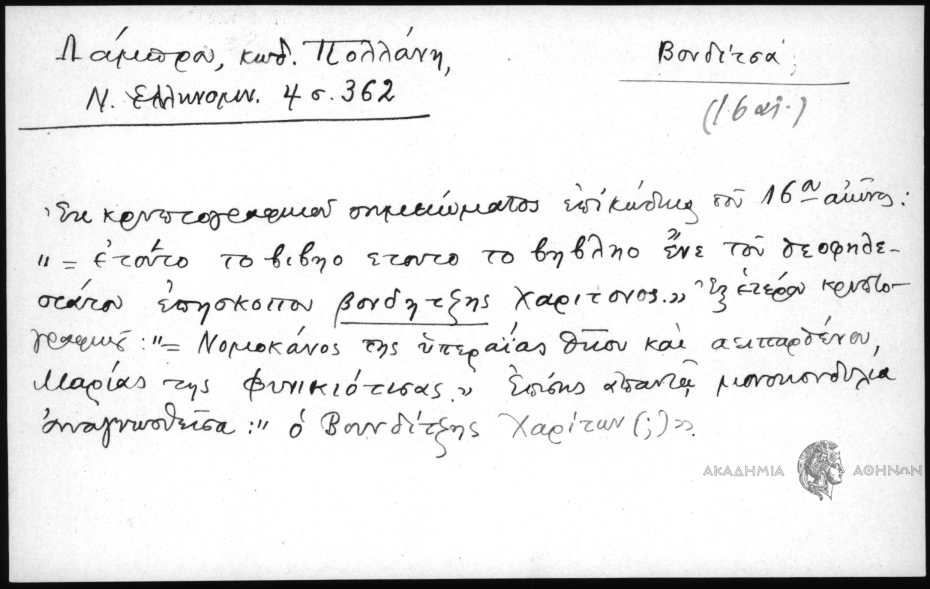 Λάμπρου, κωδ. Πολλάνη,
Ν. Ελληνομν. 4 σ. 362
Βονδίτσα
(16 αι.)
Ἐκ κρυπτογραφικοῦ σημειώματος ἐπὶ κώδικος τοῦ 16ου αἰῶνος:
"= ἐτοῦτο το βιβηο ετουτο το βηβληο ἔνε τοῦ θεοφηλε-
στάτου ἐπησκοπου βονδητζης Χαριτονος." Ἐξ ἑτέρου κρυπτο-
γραφικοῦ: "= Νομοκάνος της ὑπεραίας θκου και αειπαρθένου,
Μαρίας της Φυνικιότισας." Ἐπίσης ἀπαντᾷ μονοκονδυλιά
ἀναγνωσθεῖσα: " ὁ Βουνδίτζης Χαρίτων (;)".
ΑΚΑΔΗΜΙΑ ΑΘΗΝΩΝ